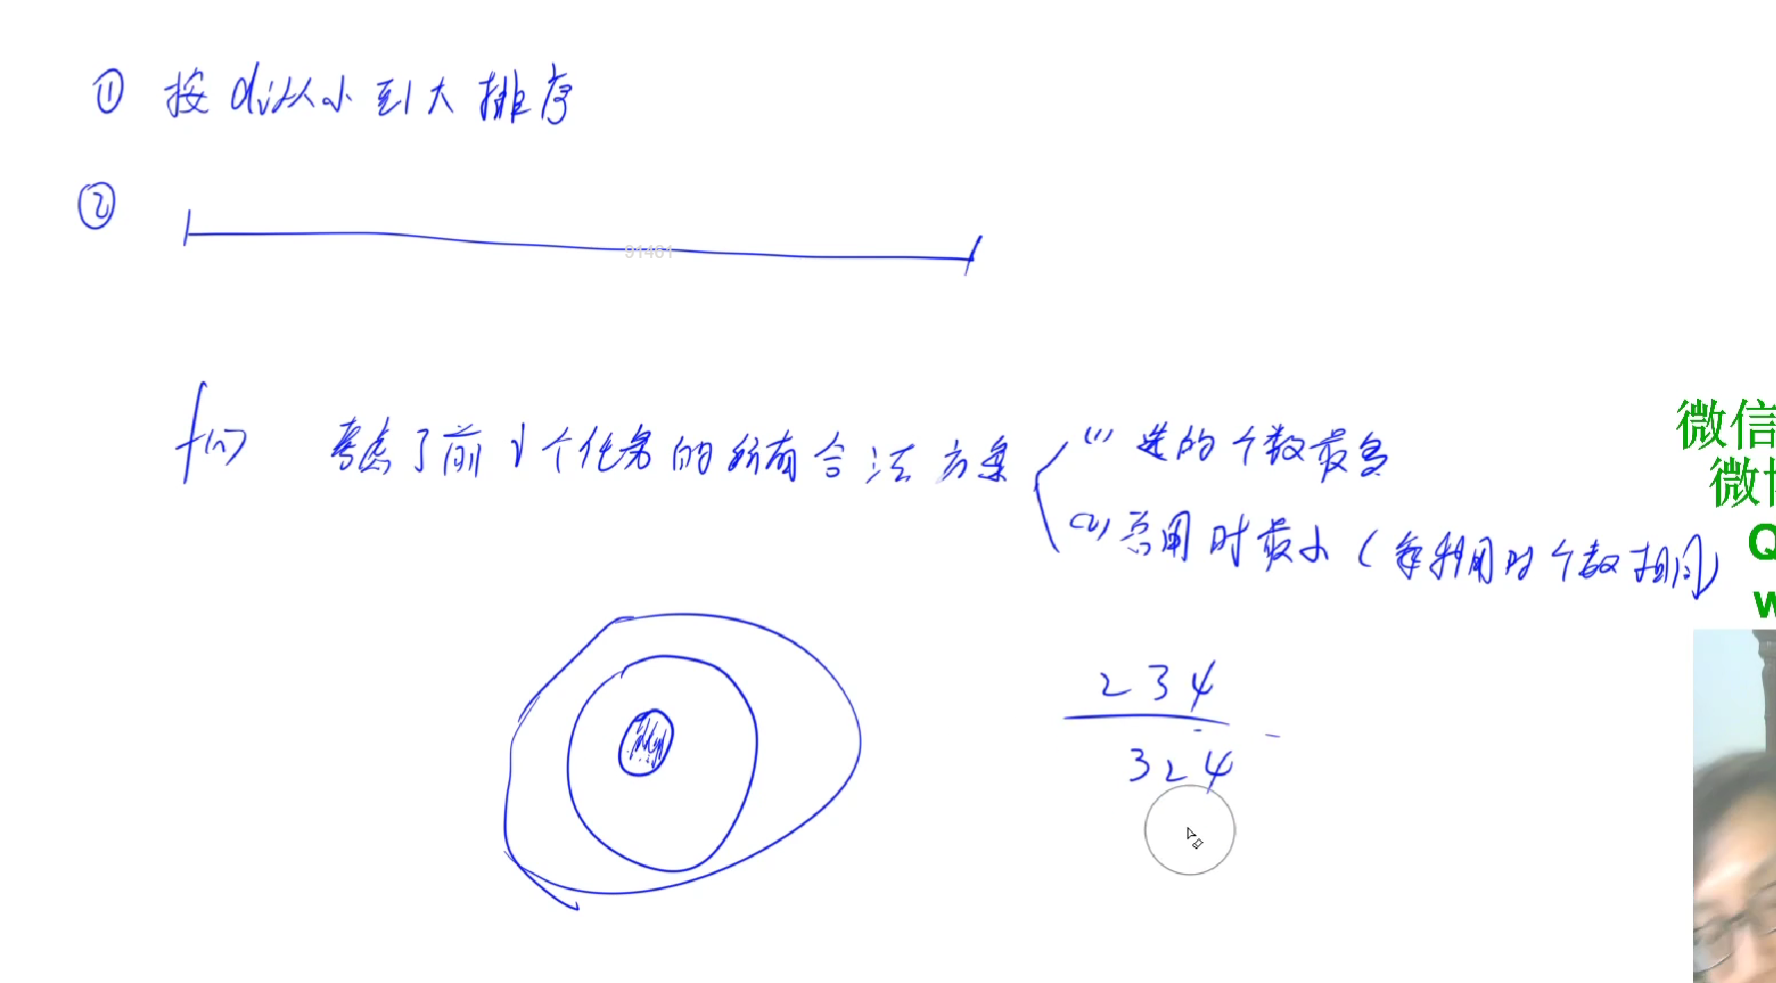 ① 按 di 从小到大排序
②
91461
f(i) 考虑了前 i 个任务的所有合法方案
(1) 选的个数最多
(2) 总用时最小 (每种用时个数相同)
2 3 4
3 2 4
微信
微博
Q
w